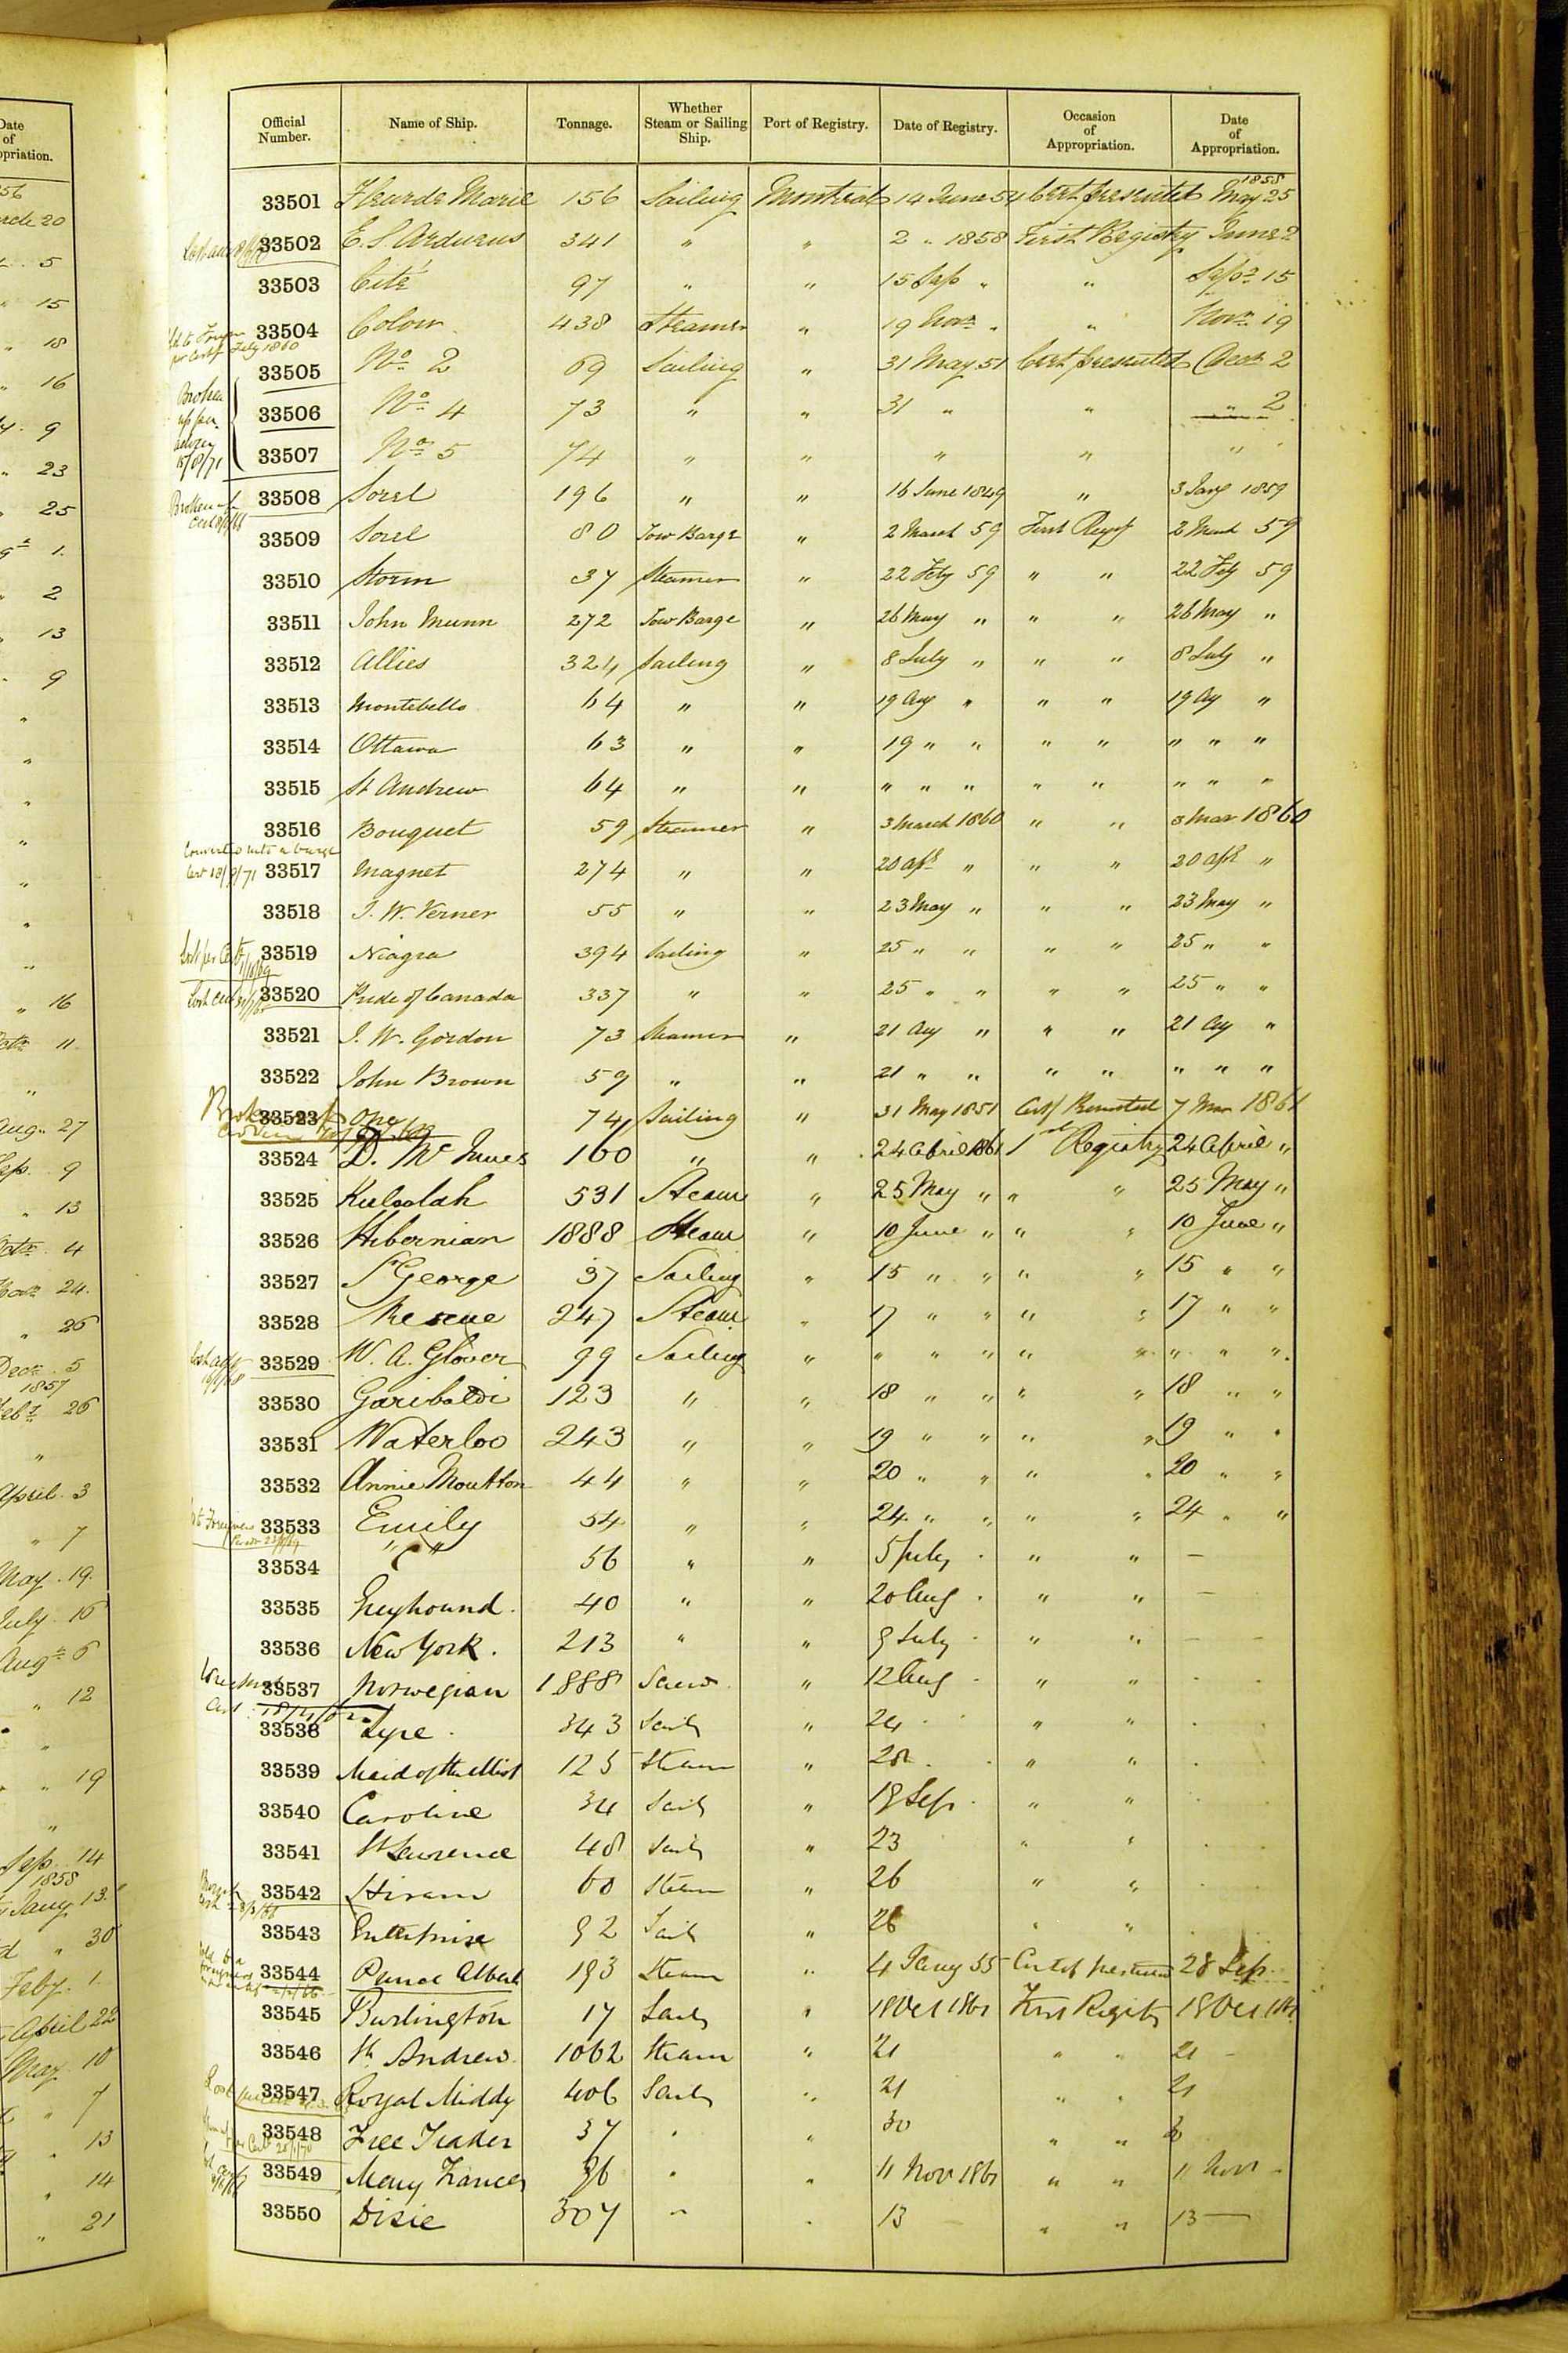 Date of Appropriation.
56
20
5
" 15
" 18
" 16
9
" 23
" 25
1.
2
13
9
"
"
"
"
"
"
"
" 16
11
"
Aug. 27
Sep. 9
" 13
4
24.
" 26
Dec. 5
1857
26
"
April. 3
" 7
May. 19.
July. 16
Aug. 6
" 12
"
" 19
"
Sep. 14
1858
Jany 13
" 30
Feby. 1.
April 22
May 10
" 7
" 13
" 14
" 21
Official Number. Name of Ship. Tonnage. Whether Steam or Sailing Ship. Port of Registry. Date of Registry. Occasion of Appropriation. Date of Appropriation.
1858
33501 Fleur de Marie 156 Sailing Montreal 14 June 54 Cert presented May 25
33502 E. S. 341 " " 2 " 1858 First Registry June 2
33503 Cité 97 " " 15 Sep " " Sepr 15
33504 Colon 438 Steamer " 19 Novr " " Novr 19
33505 No 2 69 Sailing " 31 May 51 Cert presented Decr 2
Broken up per advice 15/8/71
33506 No 4 73 " " 31 " " " 2
33507 No 5 74 " " " " " "
Broken up
33508 Sorel 196 " " 16 June 1849 " 3 Jany 1859
33509 Sorel 80 Tow Barge " 2 March 59 First Regy 2 March 59
33510 Storm 37 Steamer " 22 Feby 59 " " 22 Feby 59
33511 John Munn 272 Tow Barge " 26 May " " " 26 May "
33512 Allies 324 Sailing " 8 July " " " 8 July "
33513 Montebello 64 " " 19 Aug " " " 19 Ag "
33514 Ottawa 63 " " 19 " " " " " " "
33515 St Andrew 64 " " " " " " " " " "
33516 Bouquet 59 Steamer " 3 March 1860 " " 3 Mar 1860
Converted into a barge Cert 13/9/71
33517 Magnet 274 " " 20 Apl " " " 20 Apl "
33518 J. W. Verner 55 " " 23 May " " " 23 May "
Lost per Cert
33519 Niagra 394 Sailing " 25 " " " " 25 " "
Lost Cert
33520 Pride of Canada 337 " " 25 " " " " 25 " "
33521 J. W. Gordon 73 Steamer " 21 Aug " " " 21 Ag "
33522 John Brown 59 " " 21 " " " " " " "
33523 One 74 Sailing " 31 May 1851 Cert Presented 7 Mar 1861
33524 D. McInnes 160 " " 24 April 1861 1st Registry 24 April "
33525 Kuloolah 531 Steam " 25 May " " " 25 May "
33526 Hibernian 1888 Steam " 10 June " " " 10 June "
33527 St George 37 Sailing " 15 " " " " 15 " "
33528 Rescue 247 Steam " 17 " " " " 17 " "
33529 W. A. Glover 99 Sailing " " " " " " " " "
33530 Garibaldi 123 " " 18 " " " " 18 " "
33531 Waterloo 243 " " 19 " " " " 19 " "
33532 Annie Moulton 44 " " 20 " " " " 20 " "
33533 Emily 54 " " 24 " " " " 24 " "
33534 " " 56 " " 5 July " " " —
33535 Greyhound. 40 " " 20 Aug " " " —
33536 New York. 213 " " 9 July " " " —
33537 Norwegian 1888 Screw " 12 Aug " " "
33538 Lyre 343 Sailg " 24 " "
33539 Maid of the Mist 125 Steam " 28 " "
33540 Caroline 34 Sailg " 19 Sep " "
33541 St Lawrence 48 Sailg " 23 " "
33542 Hiram 60 Steam " 26 " "
33543 Enterprise 92 Sail " 26 " "
33544 Prince Albert 193 Steam " 4 Jany 55 Cert of presented 28 Sep.
33545 Burlington 17 Sailg " 18 Oct 1861 First Registy 18 Oct 1861
33546 St Andrew 1062 Steam " 21 " " 21
Lost
33547 Royal Middy 406 Sailg " 21 " " 21
33548 Free Trader 37 " " 30 " "
33549 Mary Frances 36 " " 11 Nov 1861 " " 11 Nov
33550 Dixie 307 " " 13 " " 13 —